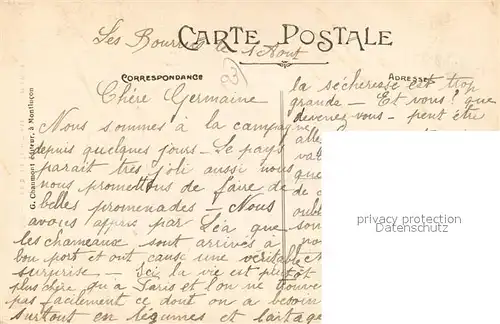 Les Bourr le 1 Aout
CARTE POSTALE
CORRESPONDANCE
ADRESSE
G. Chaumont éditeur, à Montluçon
Chère Germaine
Nous sommes à la campagne
depuis quelques jours – Le pays
parait très joli aussi nous
nous promettons de faire de
belles promenades – Nous
avons appris par Léa que
les chameaux sont arrivés à
bon port et ont causé une véritable
surprise. – Ici la vie est plutôt
plus chère qu'à Paris et l'on ne trouve
pas facilement ce dont on a besoin
surtout en légumes et laitage
la sécheresse est trop
grande – Et vous? que
devenez vous – peut être
alle
va
que
de c
oubl
son
no
privacy protection
Datenschutz